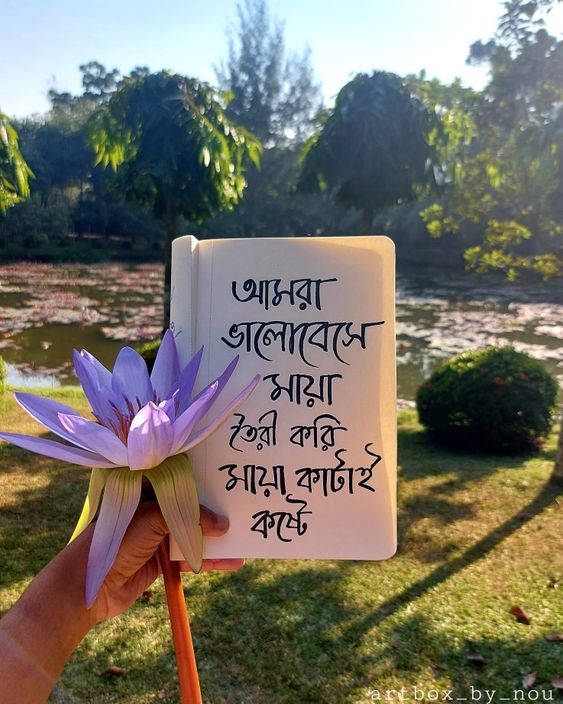 আমরা
ভালোবেসে
মায়া
তৈরী করি
মায়া কাটাই
কষ্টে
artbox_by_nou